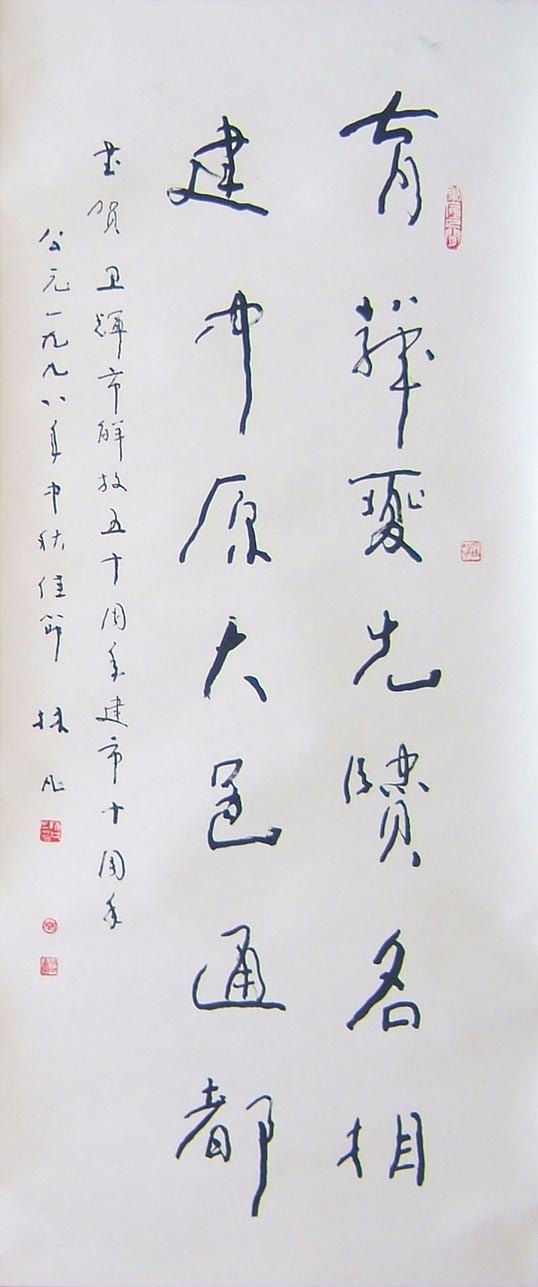 育華夏先賢名相
建中原大邑通都
书贺卫輝市解放五十周年建市十周年
公元一九九八年中秋佳節 林凡